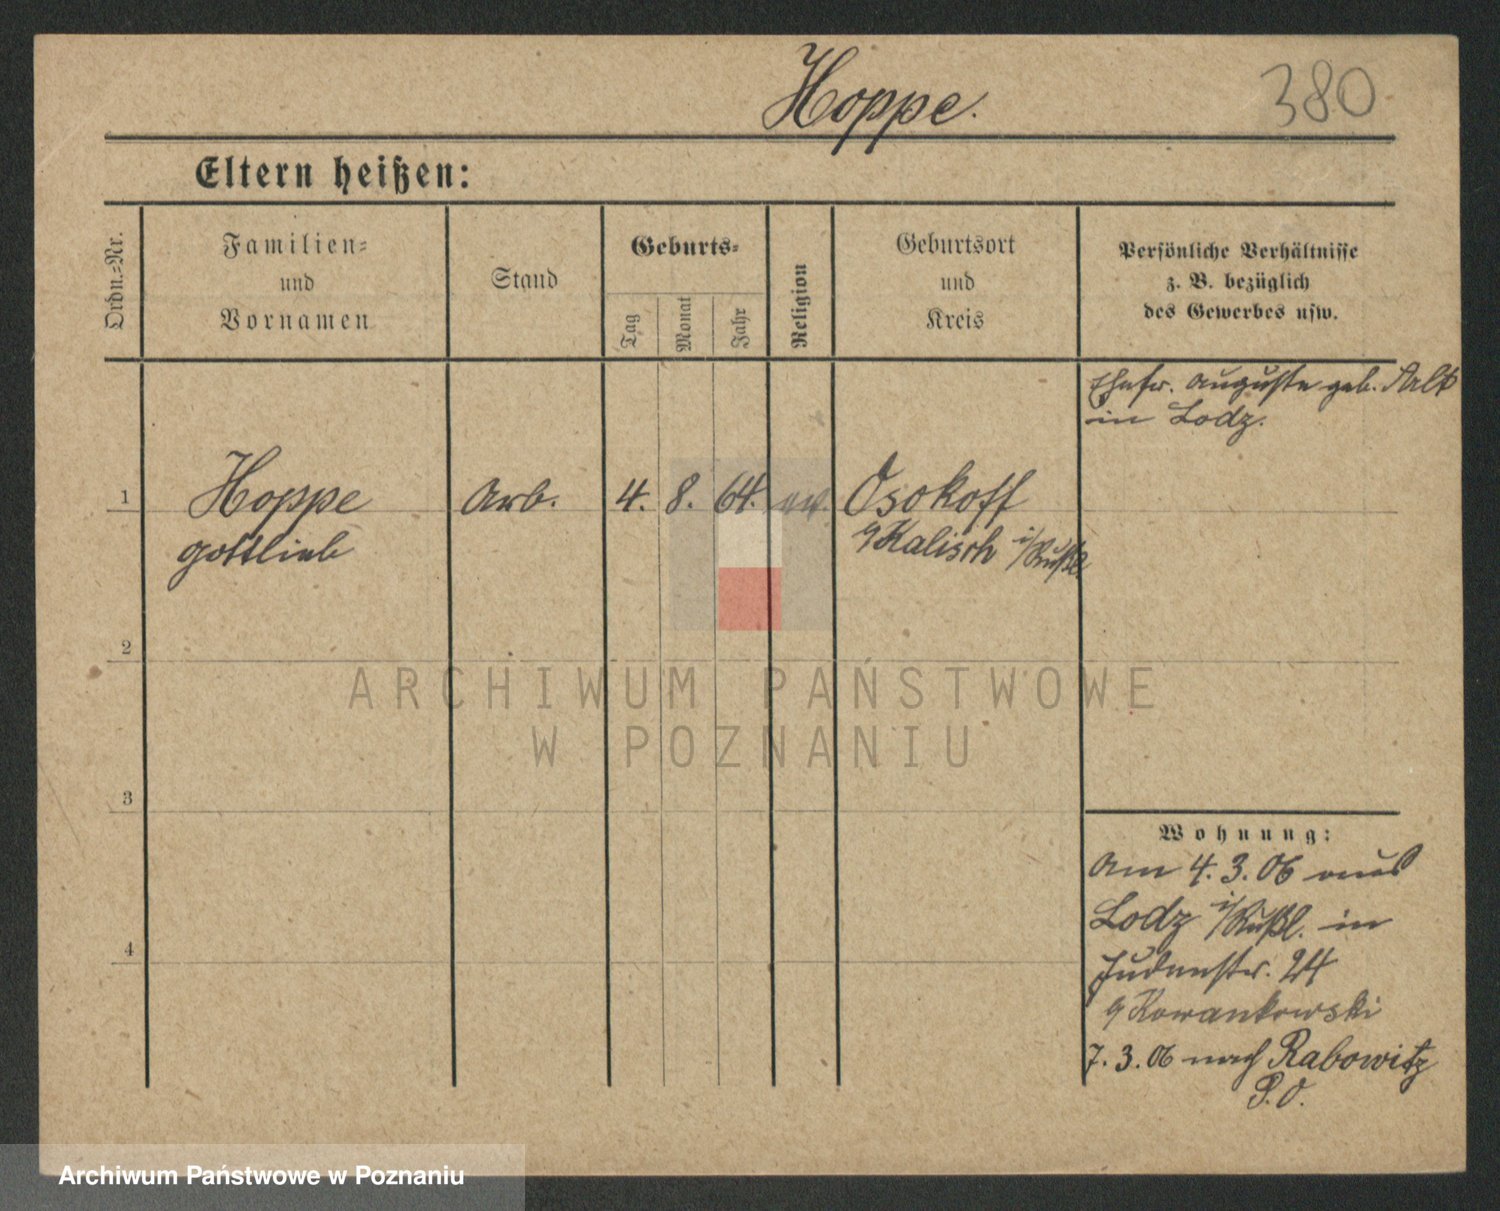 Hoppe.
380
Eltern heißen:
Ordn.-Nr.
Familien-
und
Vornamen
Stand
Geburts-
Tag
Monat
Jahr
Religion
Geburtsort
und
Kreis
Persönliche Verhältnisse
z. B. bezüglich
des Gewerbes usw.
Ehefr. Auguste geb. Arlt
in Lodz.
1
Hoppe
Gottlieb
Arb.
4. 8. 64. ev.
Osokoff
Kalisch i/Rußl.
2
3
4
ARCHIWUM PAŃSTWOWE
W POZNANIU
Wohnung:
Am 4. 3. 06 aus
Lodz i/Rußl. in
Judenstr. 24
Kowankowski
7. 3. 06 nach Rabowitz
P. O.
Archiwum Państwowe w Poznaniu